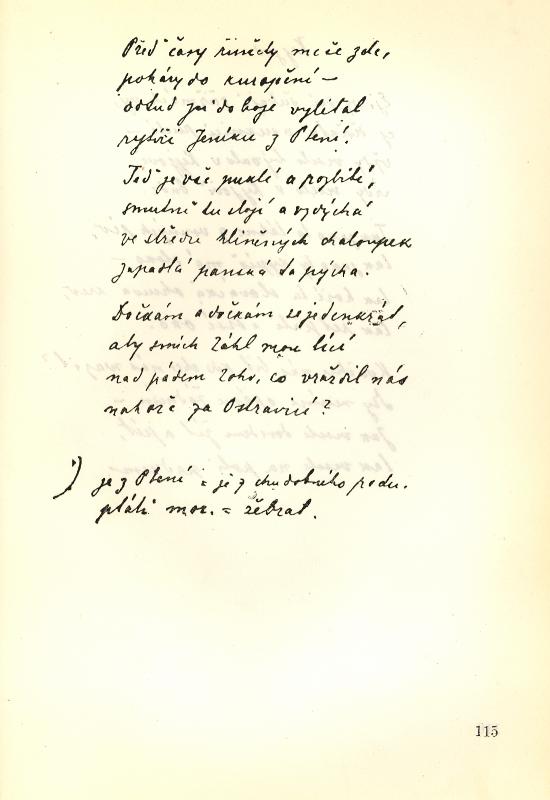 Před časy řinčely meče zde,
poháry do kuropění —
odtud je do boje vylítal
rytíři Jeníku z Ptení.
Teď je vše puklé a rozbité,
smutně tu stojí a vzdychá
ve středu hliněných chaloupek
zapadlá panská ta pýcha.
Dočkám a dočkám se jedenkrát,
aby smích táhl mou lící
nad pádem toho, co vraždil nás
nahoře za Ostravicí?
je z Ptení = je z chudobného rodu.
ptáti mor. = žebrat.
115